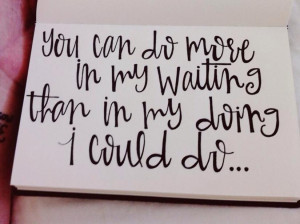 you can do more
in my waiting
than in my doing
i could do...